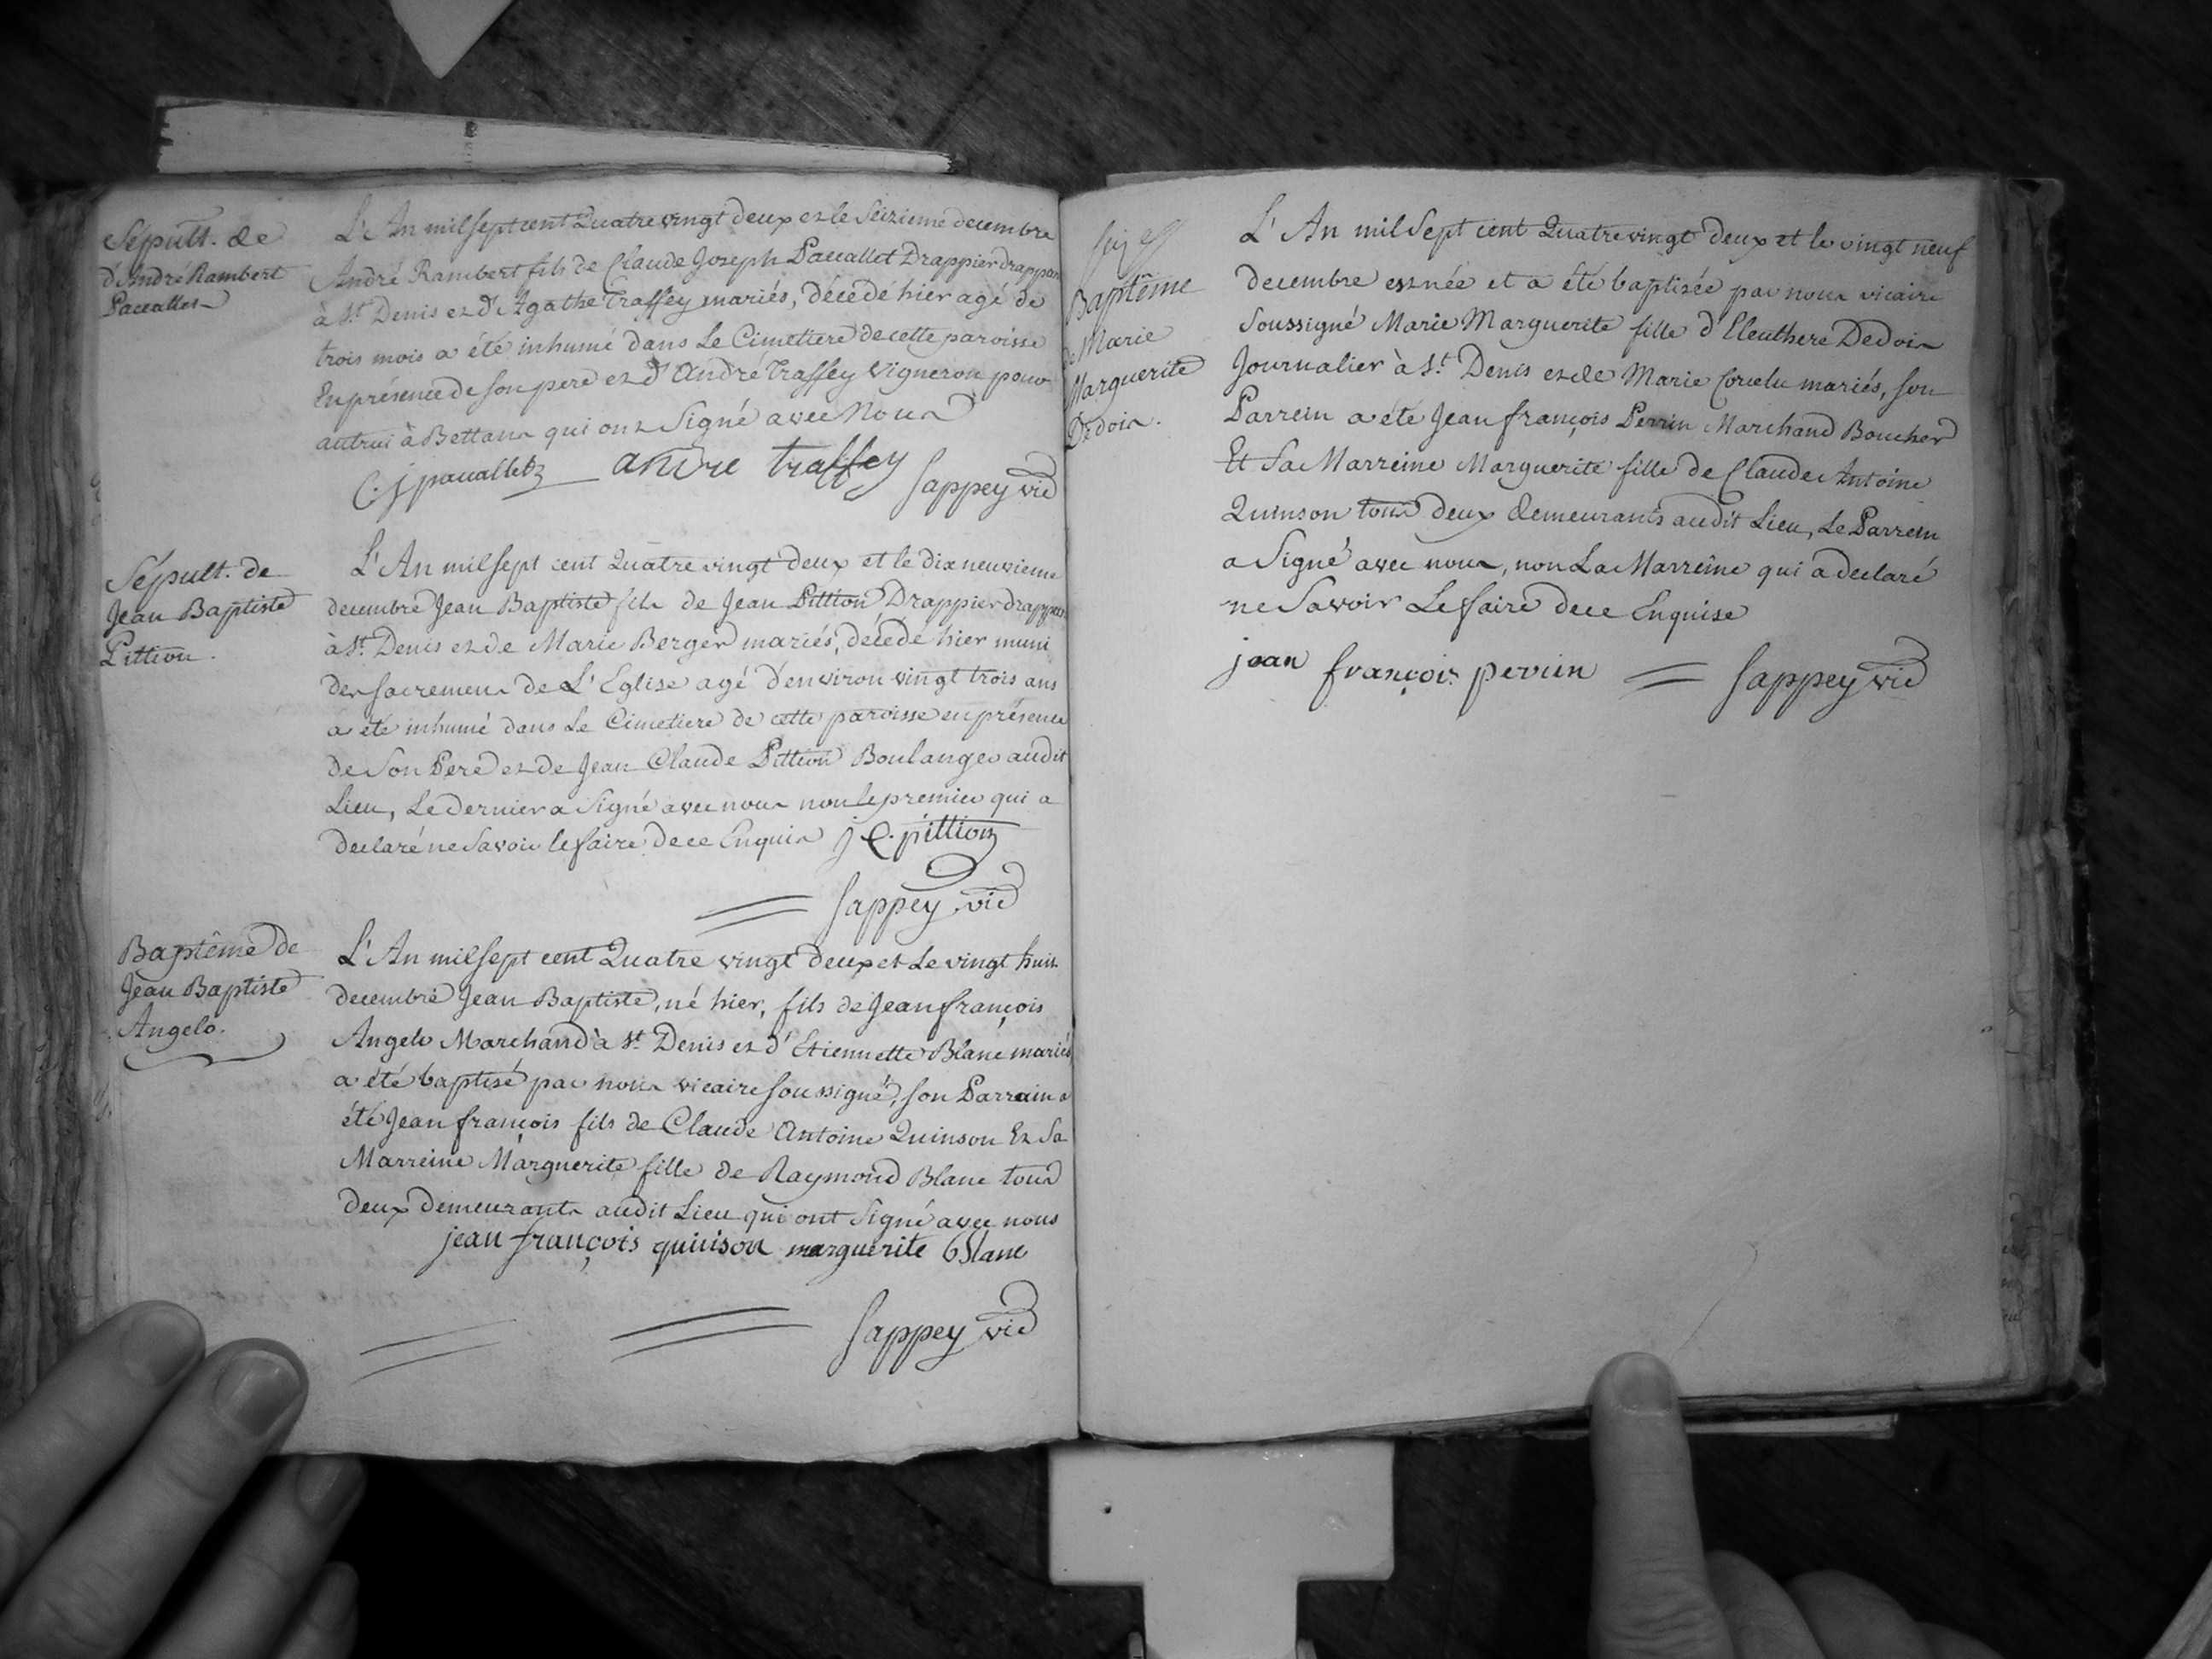 Sépult. de
d'André Rambert
Paccallet
L'An mil sept cent Quatre vingt deux et le Seizieme decembre
André Rambert fils de Claude Joseph Paccallet Drappier drappan
à St. Denis et d'Agathe Traffey mariés, décédé hier agé de
trois mois a été inhumé dans Le Cimetiere de cette paroisse
En présence de son pere et d'André Traffey Vigneron pour
autrui à Bettans qui ont Signé avec Nous
C. j paccallet andre traffey Sappey vic
Sépult. de
Jean Baptiste
Pittion.
L'An mil sept cent Quatre vingt deux et le dix neuvieme
decembre Jean Baptiste fils de Jean Pittion Drappier drappan
à St. Denis et de Marie Berger mariés, décédé hier muni
des sacremens de L'Eglise agé d'environ vingt trois ans
a été inhumé dans Le Cimetiere de cette paroisse en présence
de Son Pere et de Jean Claude Pittion Boulanger audit
Lieu, Le dernier a Signé avec nous non le premier qui a
declaré ne Savoir le faire de ce Enquis j C. pittion
Sappey vic
Baptême de
Jean Baptiste
Angelo.
L'An mil sept cent Quatre vingt deux et Le vingt huit
decembre Jean Baptiste, né hier, fils de Jean françois
Angelo Marchand à St. Denis et d'Etiennette Blanc mariés
a été baptisé par nous vicaire soussigné, son Parrain a
été Jean françois fils de Claude Antoine Quinson Et Sa
Marreine Marguerite fille de Raymond Blanc tous
deux demeurants audit Lieu qui ont Signé avec nous
jean françois quinson marguerite Blanc
Sappey vic
Baptême
de Marie
Marguerite
Dedoin.
L'An mil Sept cent Quatre vingt deux et le vingt neuf
decembre est née et a été baptisée par nous vicaire
Soussigné Marie Marguerite fille d'Eleuthere Dedoin
Journalier à St. Denis et de Marie mariés, son
Parrein a été Jean françois Perrin Marchand Boucher
Et Sa Marreine Marguerite fille de Claude Antoine
Quinson tous deux demeurants audit Lieu, Le Parrein
a Signé avec nous, non La Marreine qui a declaré
ne Savoir Le faire de ce Enquise
jean françois perrin Sappey vic